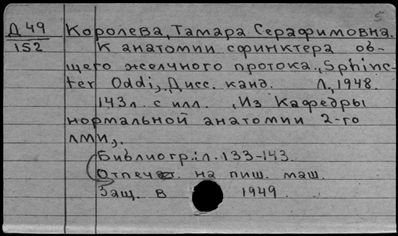 5
Д 49 Королева, Тамара Серафимовна.
152 К анатомии сфинктера об-
щего желчного протока, Sphinc-
ter Oddi, Дисс. канд. Л, 1948.
143л. с илл. , Из Кафедры
нормальной анатомии 2-го
лми,.
Библиогр.: л. 133-143.
Отпечат. на пиш. маш.
Защ. в 1949.